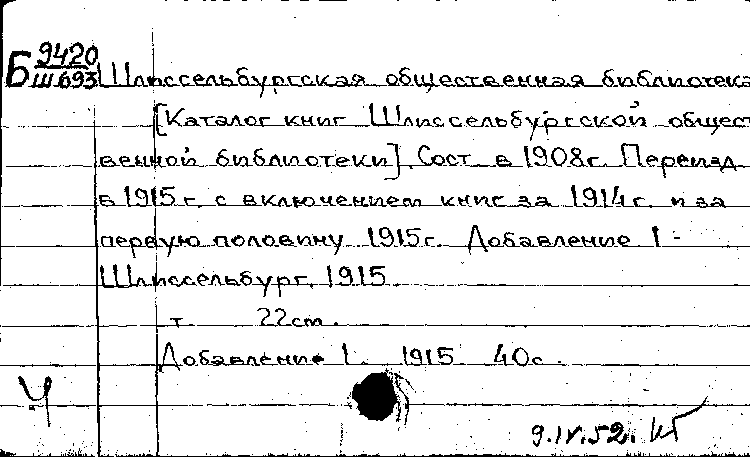 Б 9420
Ш693
Шлиссельбургская общественная библиотека
[Каталог книг Шлиссельбургской общест
венной библиотеки]. Сост. в 1908г. Переизд.
в 1915г. с включением книг за 1914г. и за
первую половину 1915г. Добавление 1-
Шлиссельбург, 1915.
т. 22cm.
Добавление 1. 1915. 40с.
Ч
9.IV.52.